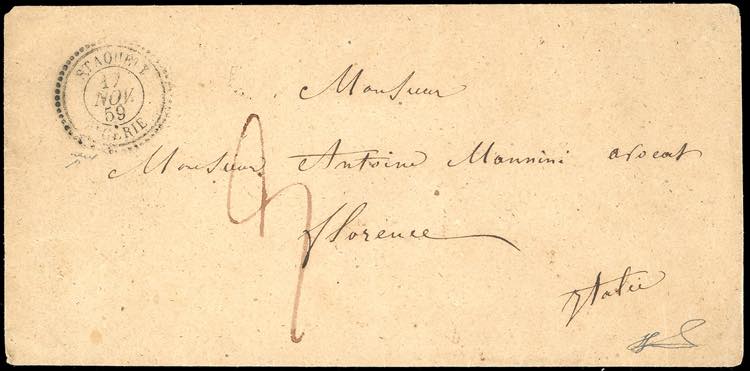 STAOUELY
17
NOV.
59
ALGERIE
Monsieur
Monsieur Antoine Mannini avocat
florence
ytalie